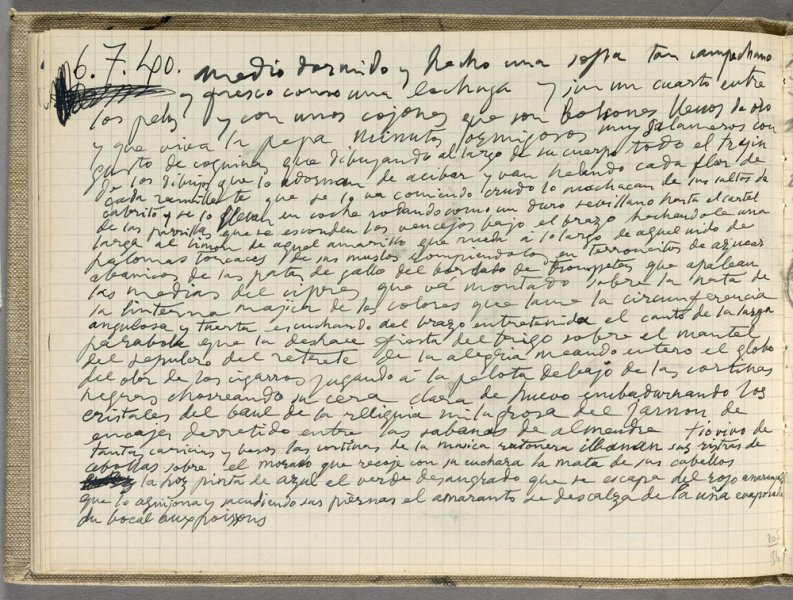 6.7.40. medio dormido y hecho una sopa tan campechano
y fresco como una lechuga y sin un cuarto entre
los pelos y con unos cojones que son bolsones llenos de oro
y que viva la pepa minutos muy salameros con
gusto de coquinas que dibujando al largo de su cuerpo todo el trajin
de los dibujos que lo adornan de acibar y van helando cada flor de
cada ramillete que se lo va comiendo crudo lo machacan de sus saltos de
cabrito y se lo llevan en coche rodando como un duro sevillano hasta el cartel
de las parrillas que se esconden los vencejos bajo el brazo hechandole una
larga al limon de aquel amarillo que rueda a lo largo de aquel nido de
palomas torcaces de sus muslos rompiendolos en terroncitos de azucar
abanicos de las patas de gallo del bordado de trompetes que apalean
las medias del cipres que va montado sobre la nata de
la linterna majica de los colores que lame la circunferencia
angulosa y tuerta escuchando del brazo entretenida el canto de la larga
parabola que la deshace fiesta del trigo sobre el mantel
del sepulcro del retrete de la alegria meando entero el globo
del olor de los cigarros jugando á la pelota debajo de las cortinas
negras chorreando su cera clara de huevo embadurnando los
cristales del baul de la relliquia milagrosa del jamon de
encajes derretido entre las sabanas de almendra tiovivo de
tanta caricias y besos las cortinas de la musica ratonera sus ristras de
cebollas sobre el morado que recoje con su cuchara la mata de sus cabellos
la hoz pinta de azul el verde desangrado que se escapa del rojo
que lo aguijona y sacudiendo sus piernas el amaranto se descalza de la uña
du bocal aux poissons
205